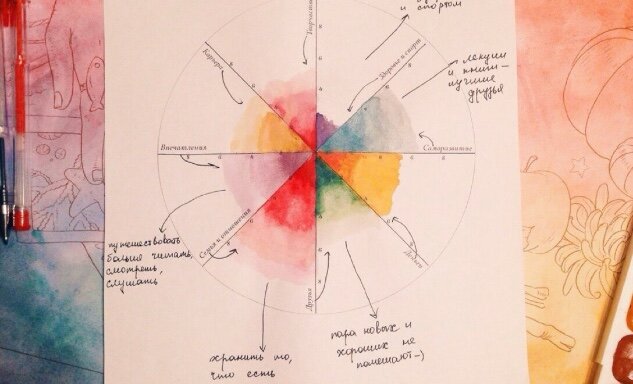 и
спортом
Творчество
Карьера
Здоровье и спорт
лекции
и книги—
лучшие
друзья
Впечатления
Саморазвитие
Семья и отношения
Друзья
Деньги
путешествовать
больше читать,
смотреть,
слушать
хранить то,
что есть
пара новых и
хороших не
помешают—)